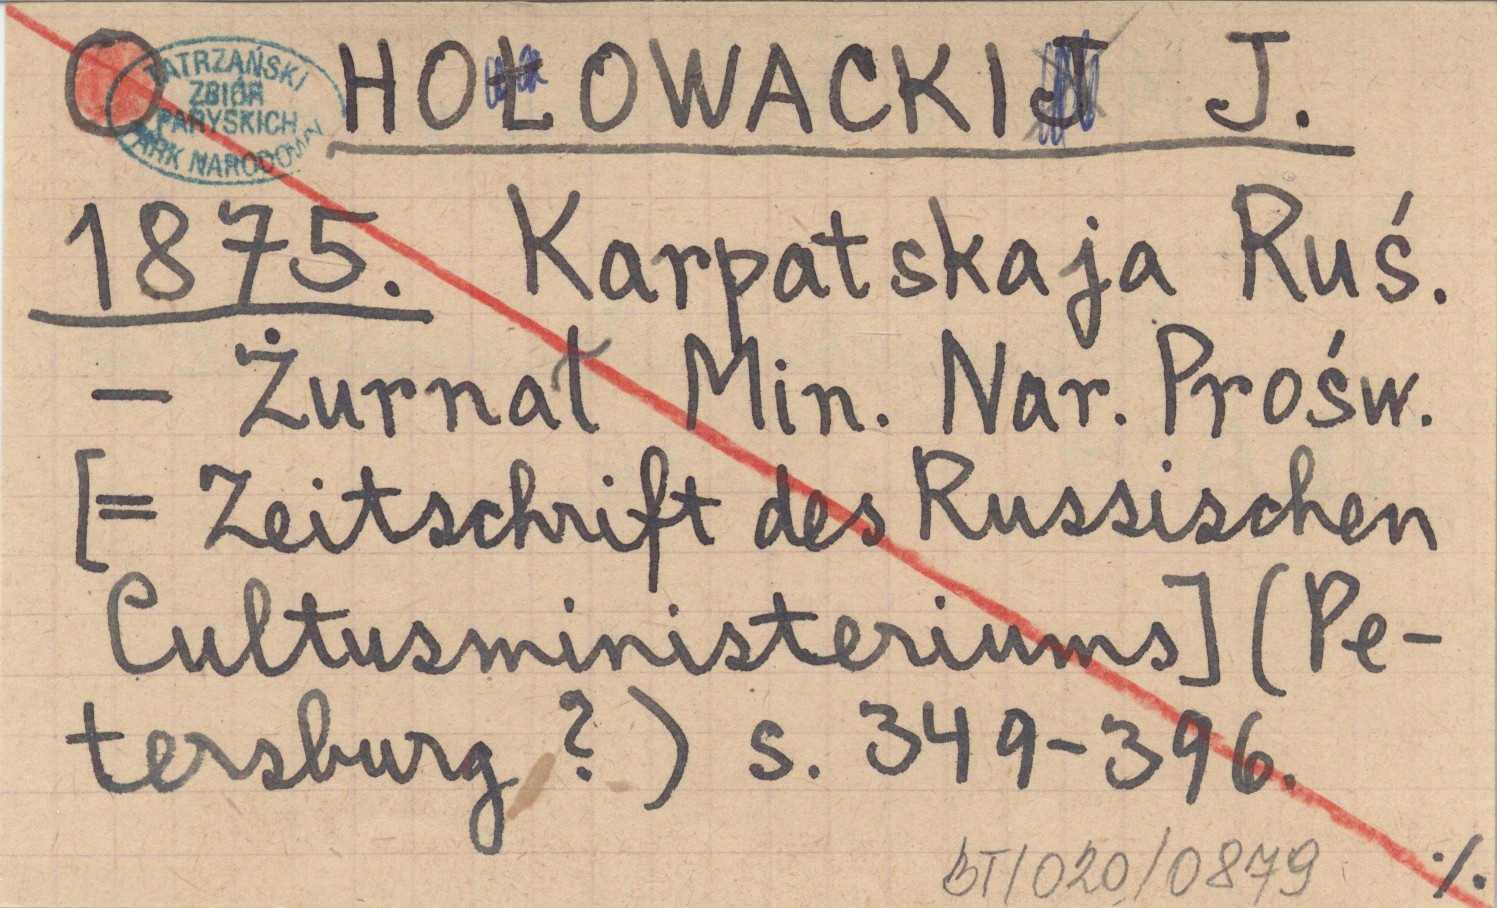 TATRZAŃSKI
ZBIÓR
PARYSKICH
PARK NARODOWY
HOŁOWACKI J.
1875. Karpatskaja Ruś.
— Żurnał Min. Nar. Prośw.
[= Zeitschrift des Russischen
Cultusministeriums] (Pe-
tersburg ?) s. 349-396.
BT/020/0879
./.